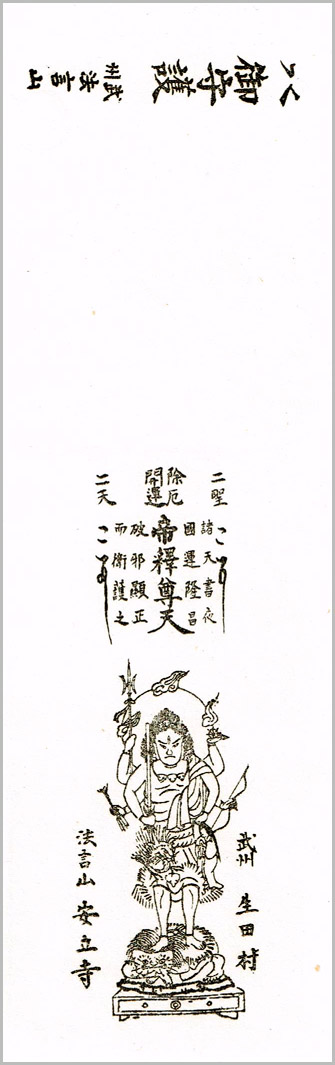 御守護
武州
法言山
二聖
諸天昼夜
國運隆昌
除厄
開運
帝釋尊天
破邪顕正
二天
而衛護之
武州
生田村
法言山
安立寺